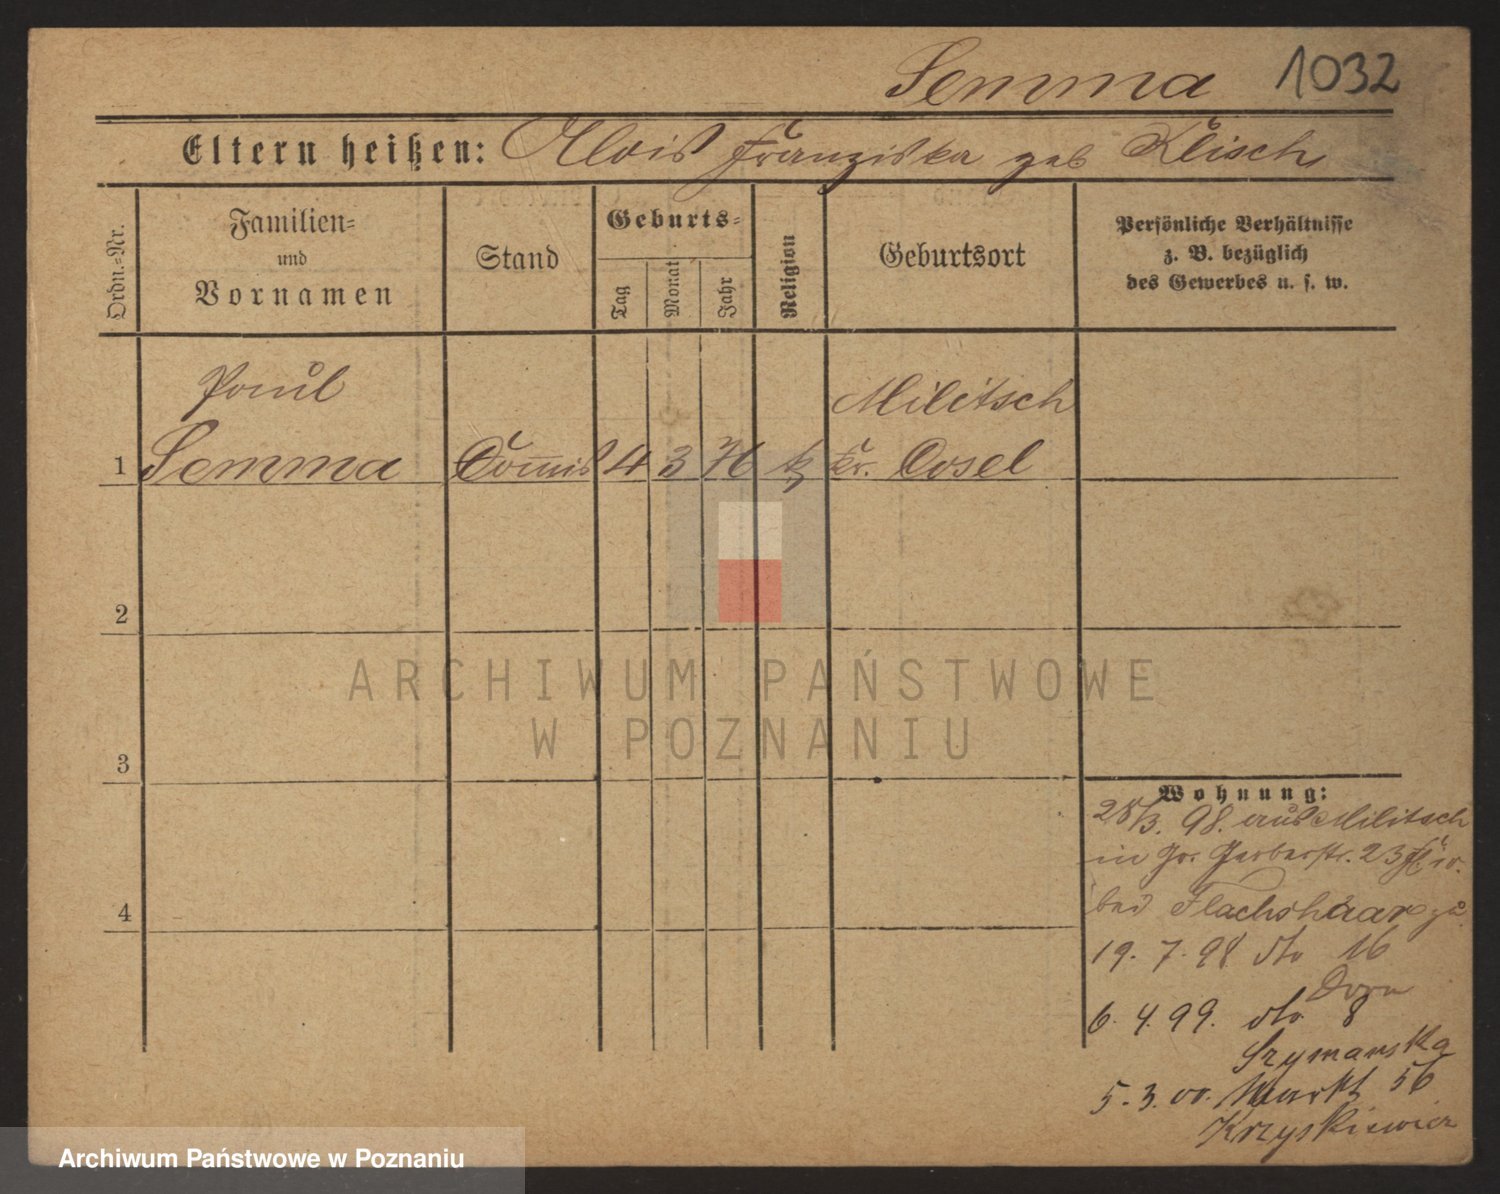 Semma 1032
Eltern heißen: Alois Franziska geb Klisch
Ordn.=Nr.
Familien=
und
Vornamen
Stand
Geburts=
Tag
Monat
Jahr
Religion
Geburtsort
Persönliche Verhältnisse
z. B. bezüglich
des Gewerbes u. s. w.
Paul
Militsch
1 Semma Commis 4 3 76 k Kr. Cosel
2
3
4
Wohnung:
28/3. 98. aus Militsch
in Gr. Gerberstr. 23
bei Flachshaar zu
19. 7. 98 dto 16
Dorn
6. 4. 99. dto 8
Szymanska
5. 3. 00. Markt 56
Krzyskiewicz
ARCHIWUM PAŃSTWOWE
W POZNANIU
Archiwum Państwowe w Poznaniu